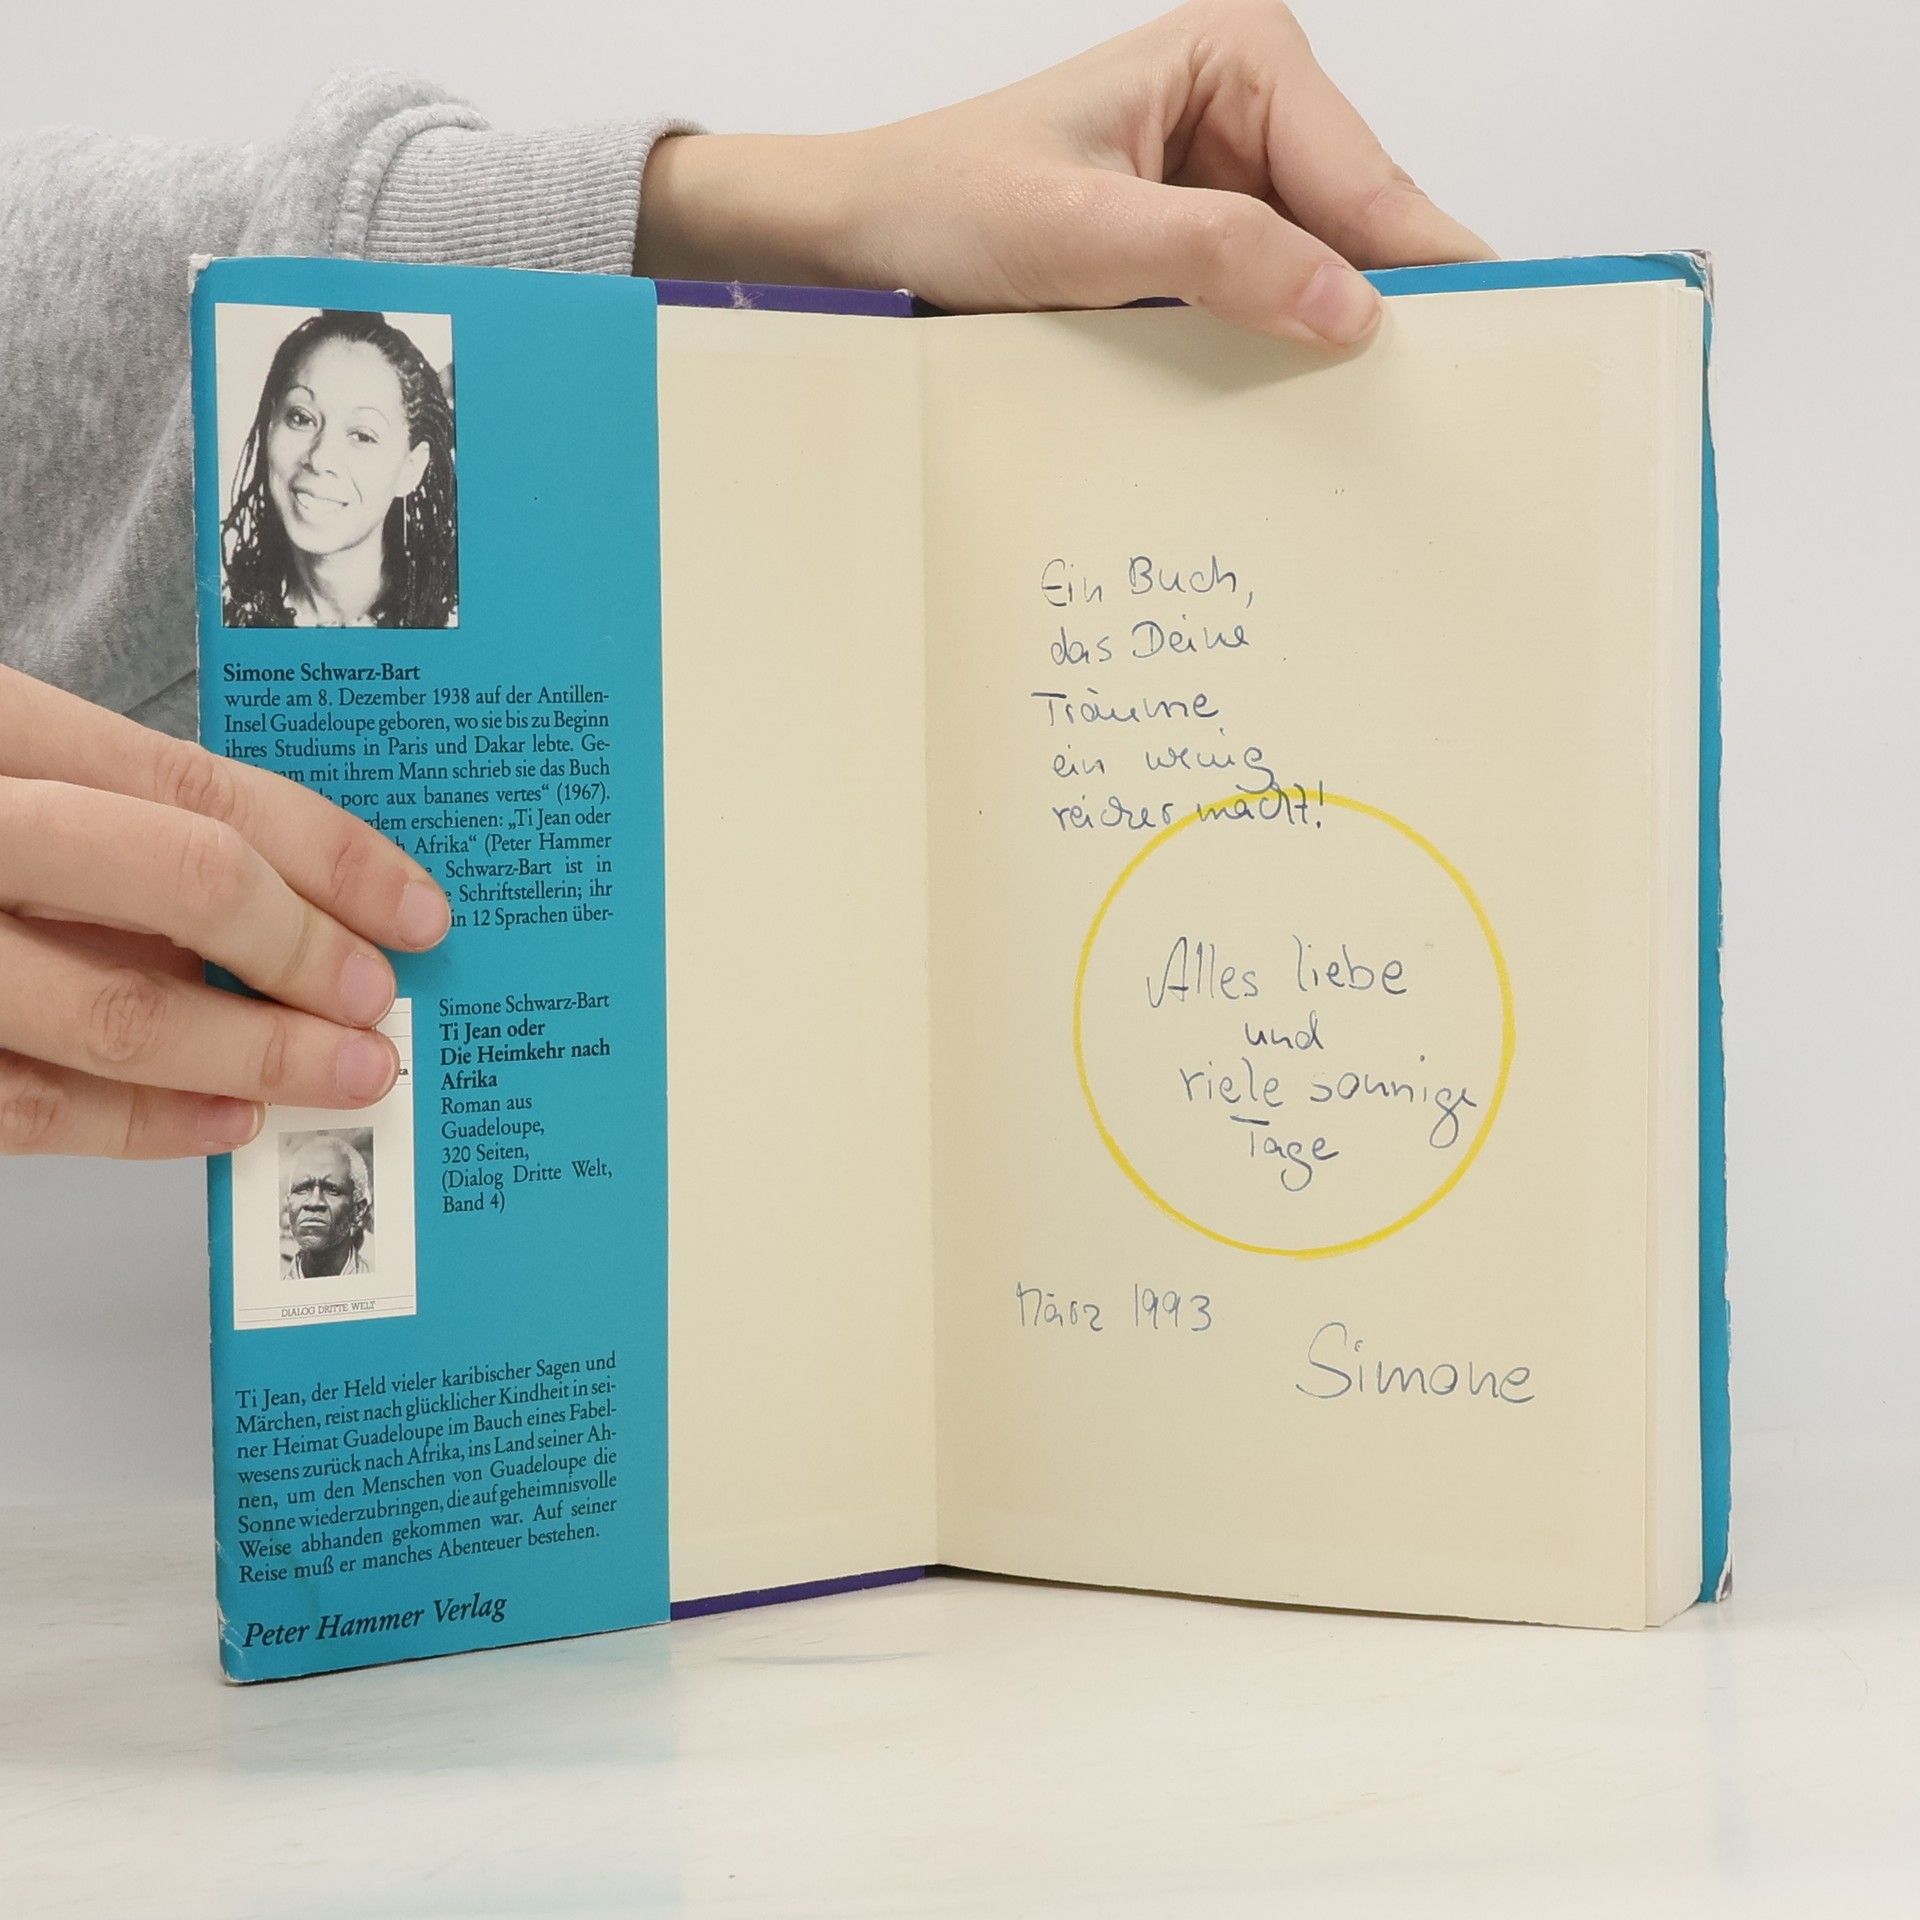 Simone Schwarz-Bart
wurde am 8. Dezember 1938 auf der Antillen-
Insel Guadeloupe geboren, wo sie bis zu Beginn
ihres Studiums in Paris und Dakar lebte. Ge-
mit ihrem Mann schrieb sie das Buch
porc aux bananes vertes“ (1967).
erschienen: „Ti Jean oder
Afrika“ (Peter Hammer
Schwarz-Bart ist in
Schriftstellerin; ihr
in 12 Sprachen über-
Simone Schwarz-Bart
Ti Jean oder
Die Heimkehr nach
Afrika
Roman aus
Guadeloupe,
320 Seiten,
(Dialog Dritte Welt,
Band 4)
DIALOG DRITTE WELT
Ti Jean, der Held vieler karibischer Sagen und
Märchen, reist nach glücklicher Kindheit in sei-
ner Heimat Guadeloupe im Bauch eines Fabel-
wesens zurück nach Afrika, ins Land seiner Ah-
nen, um den Menschen von Guadeloupe die
Sonne wiederzubringen, die auf geheimnisvolle
Weise abhanden gekommen war. Auf seiner
Reise muß er manches Abenteuer bestehen.
Peter Hammer Verlag
Ein Buch,
das Deine
Träume
ein wenig
reicher macht!
Alles liebe
und
viele sonnige
Tage
März 1993
Simone